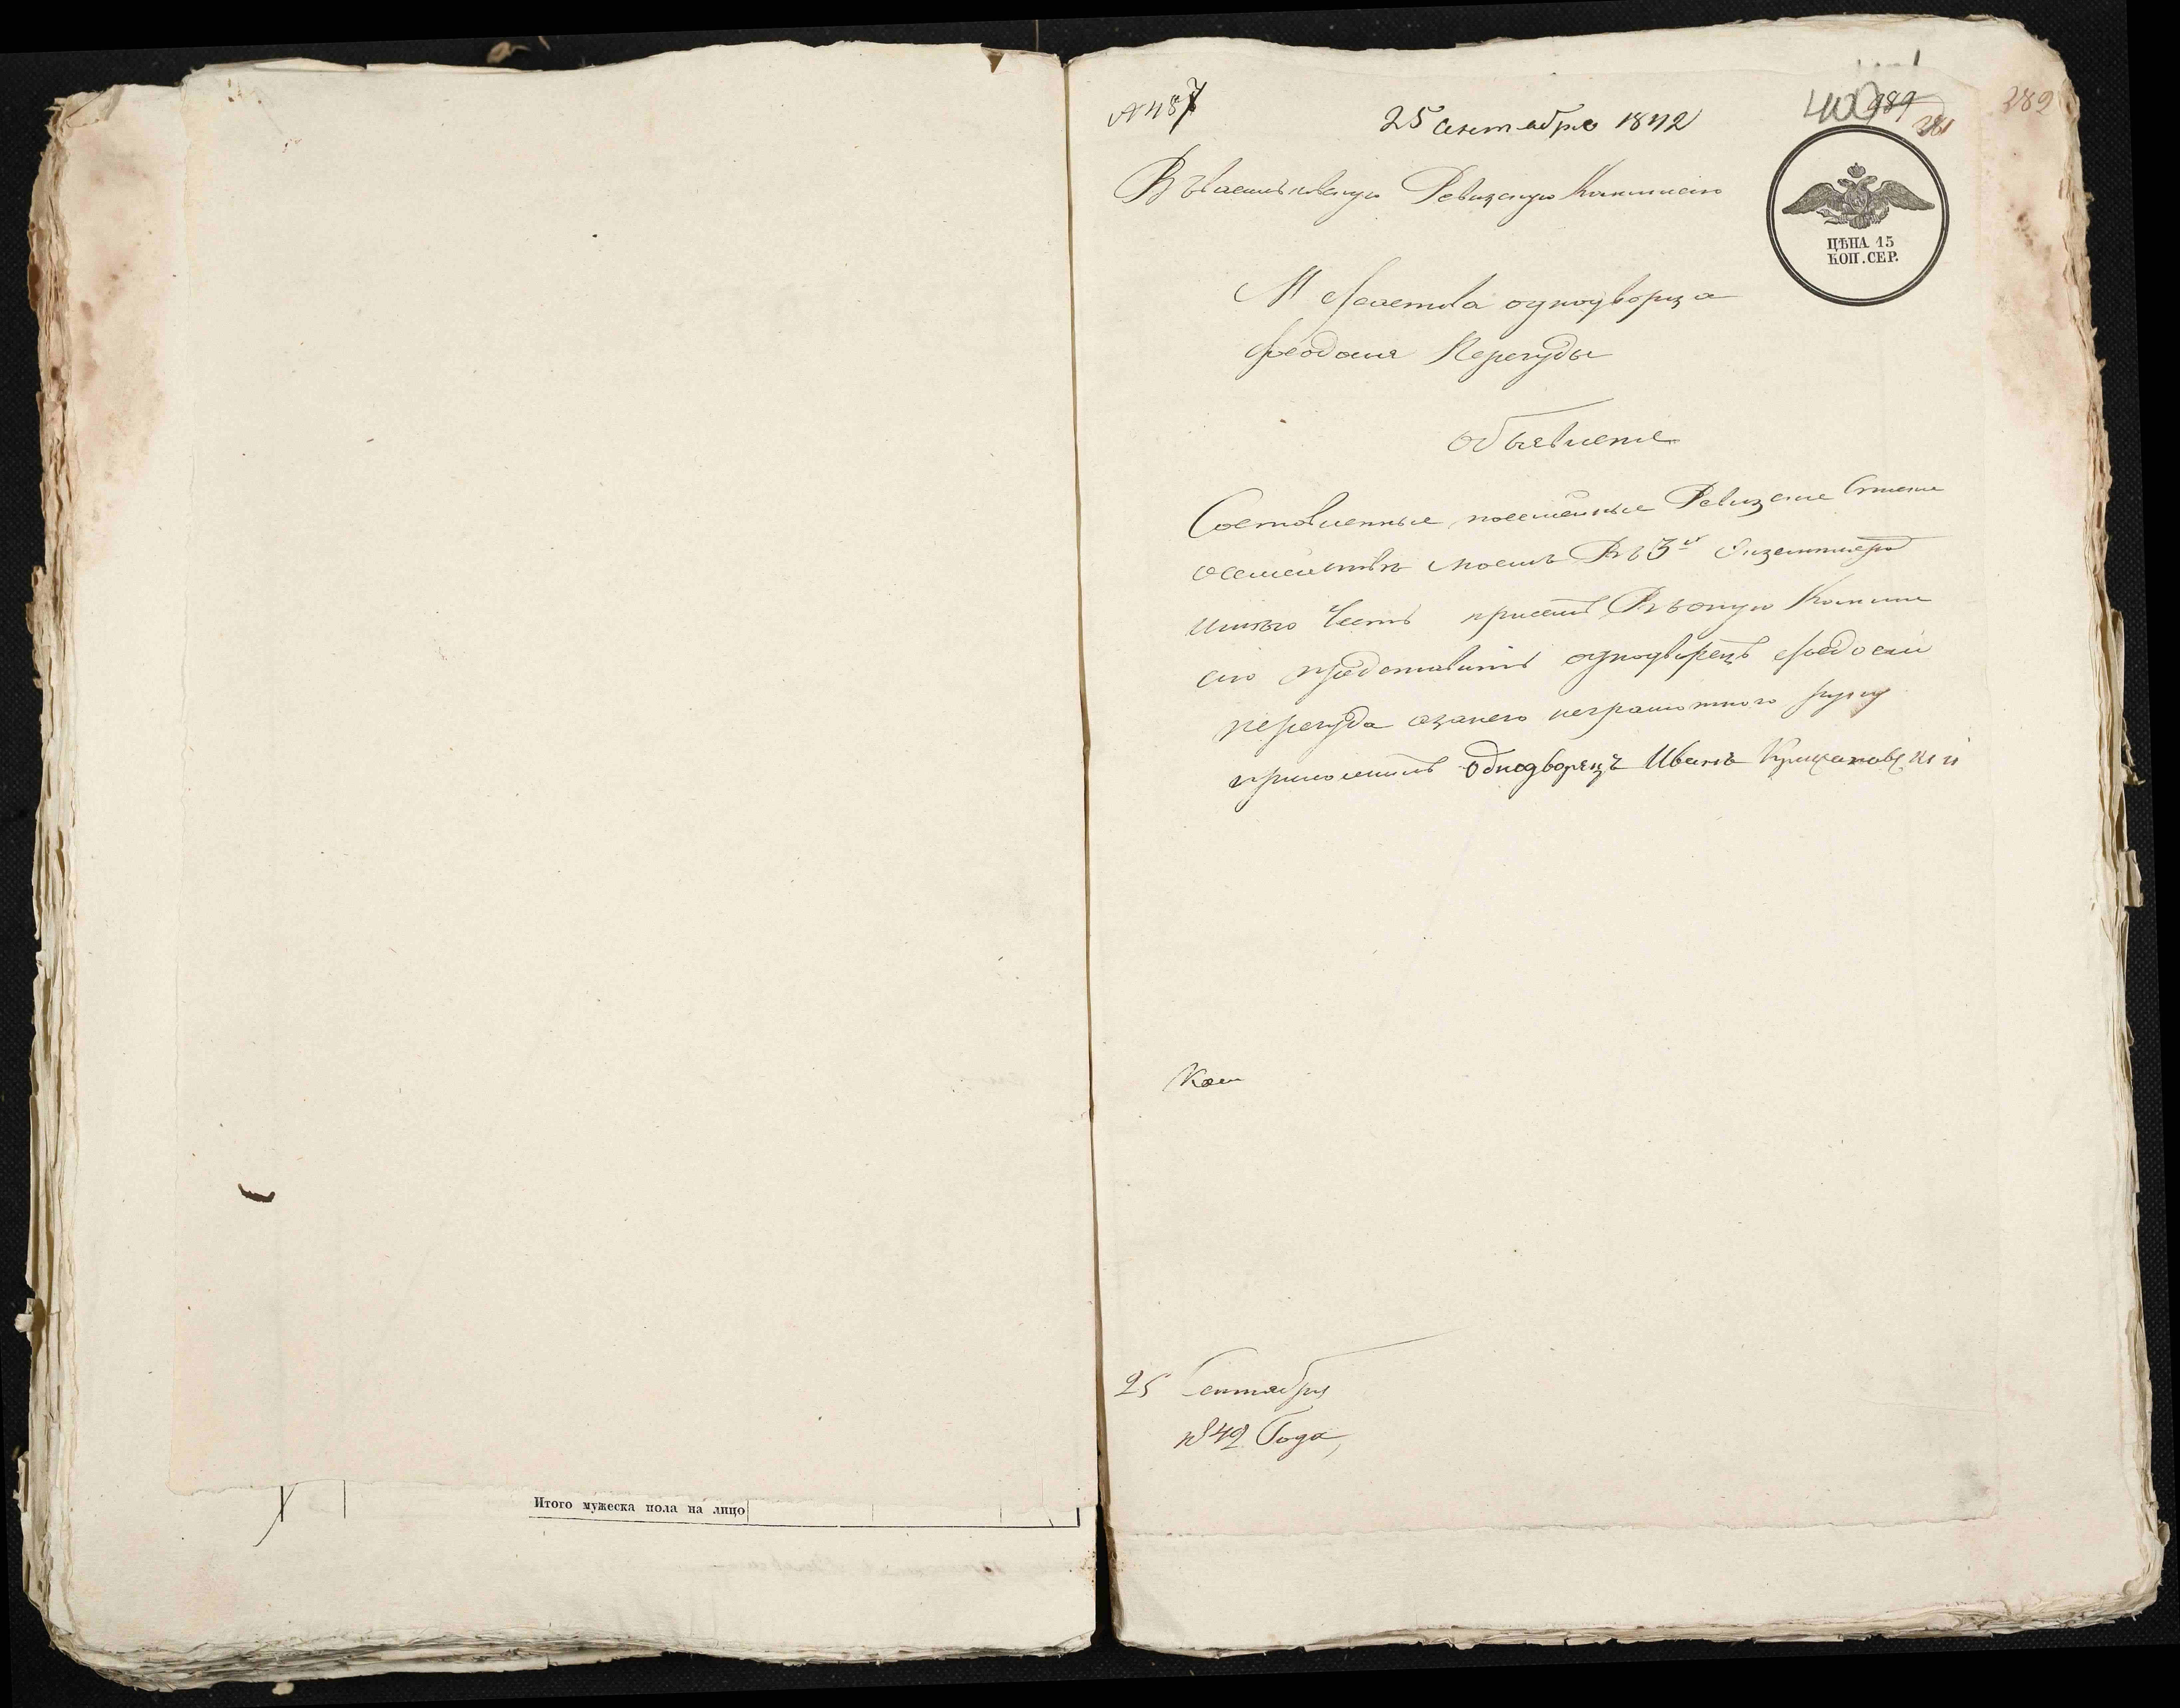 Итого мужеска пола на лицо
№ 487
25 сентября 1842
400 289
281
289
Въ Васильковскую Ревизскую Коммисію
ЦѢНА 15
КОП. СЕР.
М Фастова однодворца
Феодосія Перегуды
Объявленіе
Составленные посемейные Ревизскіе
о семействѣ моемъ Въ 3х Экземплярах
имѣю честь присемъ Въ оную Коммис
сію представить однодворецъ Феодосій
перегуда азанего неграмотного руку
приложилъ Однодворецъ Иванъ
25 Сентября
1842 Года